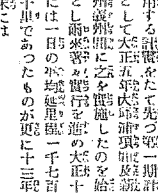 用する計畫をたて先づ第一期
として大正五年大邱浦項間及新
義州間に之を實施したのを始
とし爾來著々實行を進め大正十
には一日の平均延里程一千七百
十里であつたものが更に十三年
末には